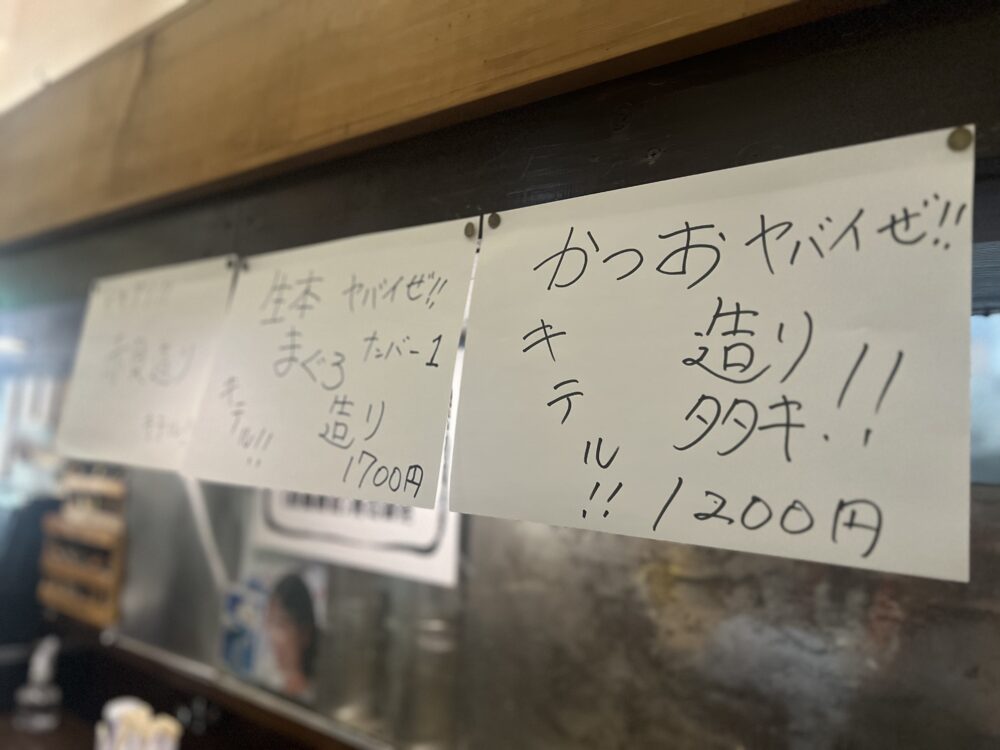 かつおヤバイぜ!!
キテル!!
造り
タタキ!!
1200円
生本 ヤバイぜ!!
まぐろ ナンバー1
キテル!!
造り
1700円
造り